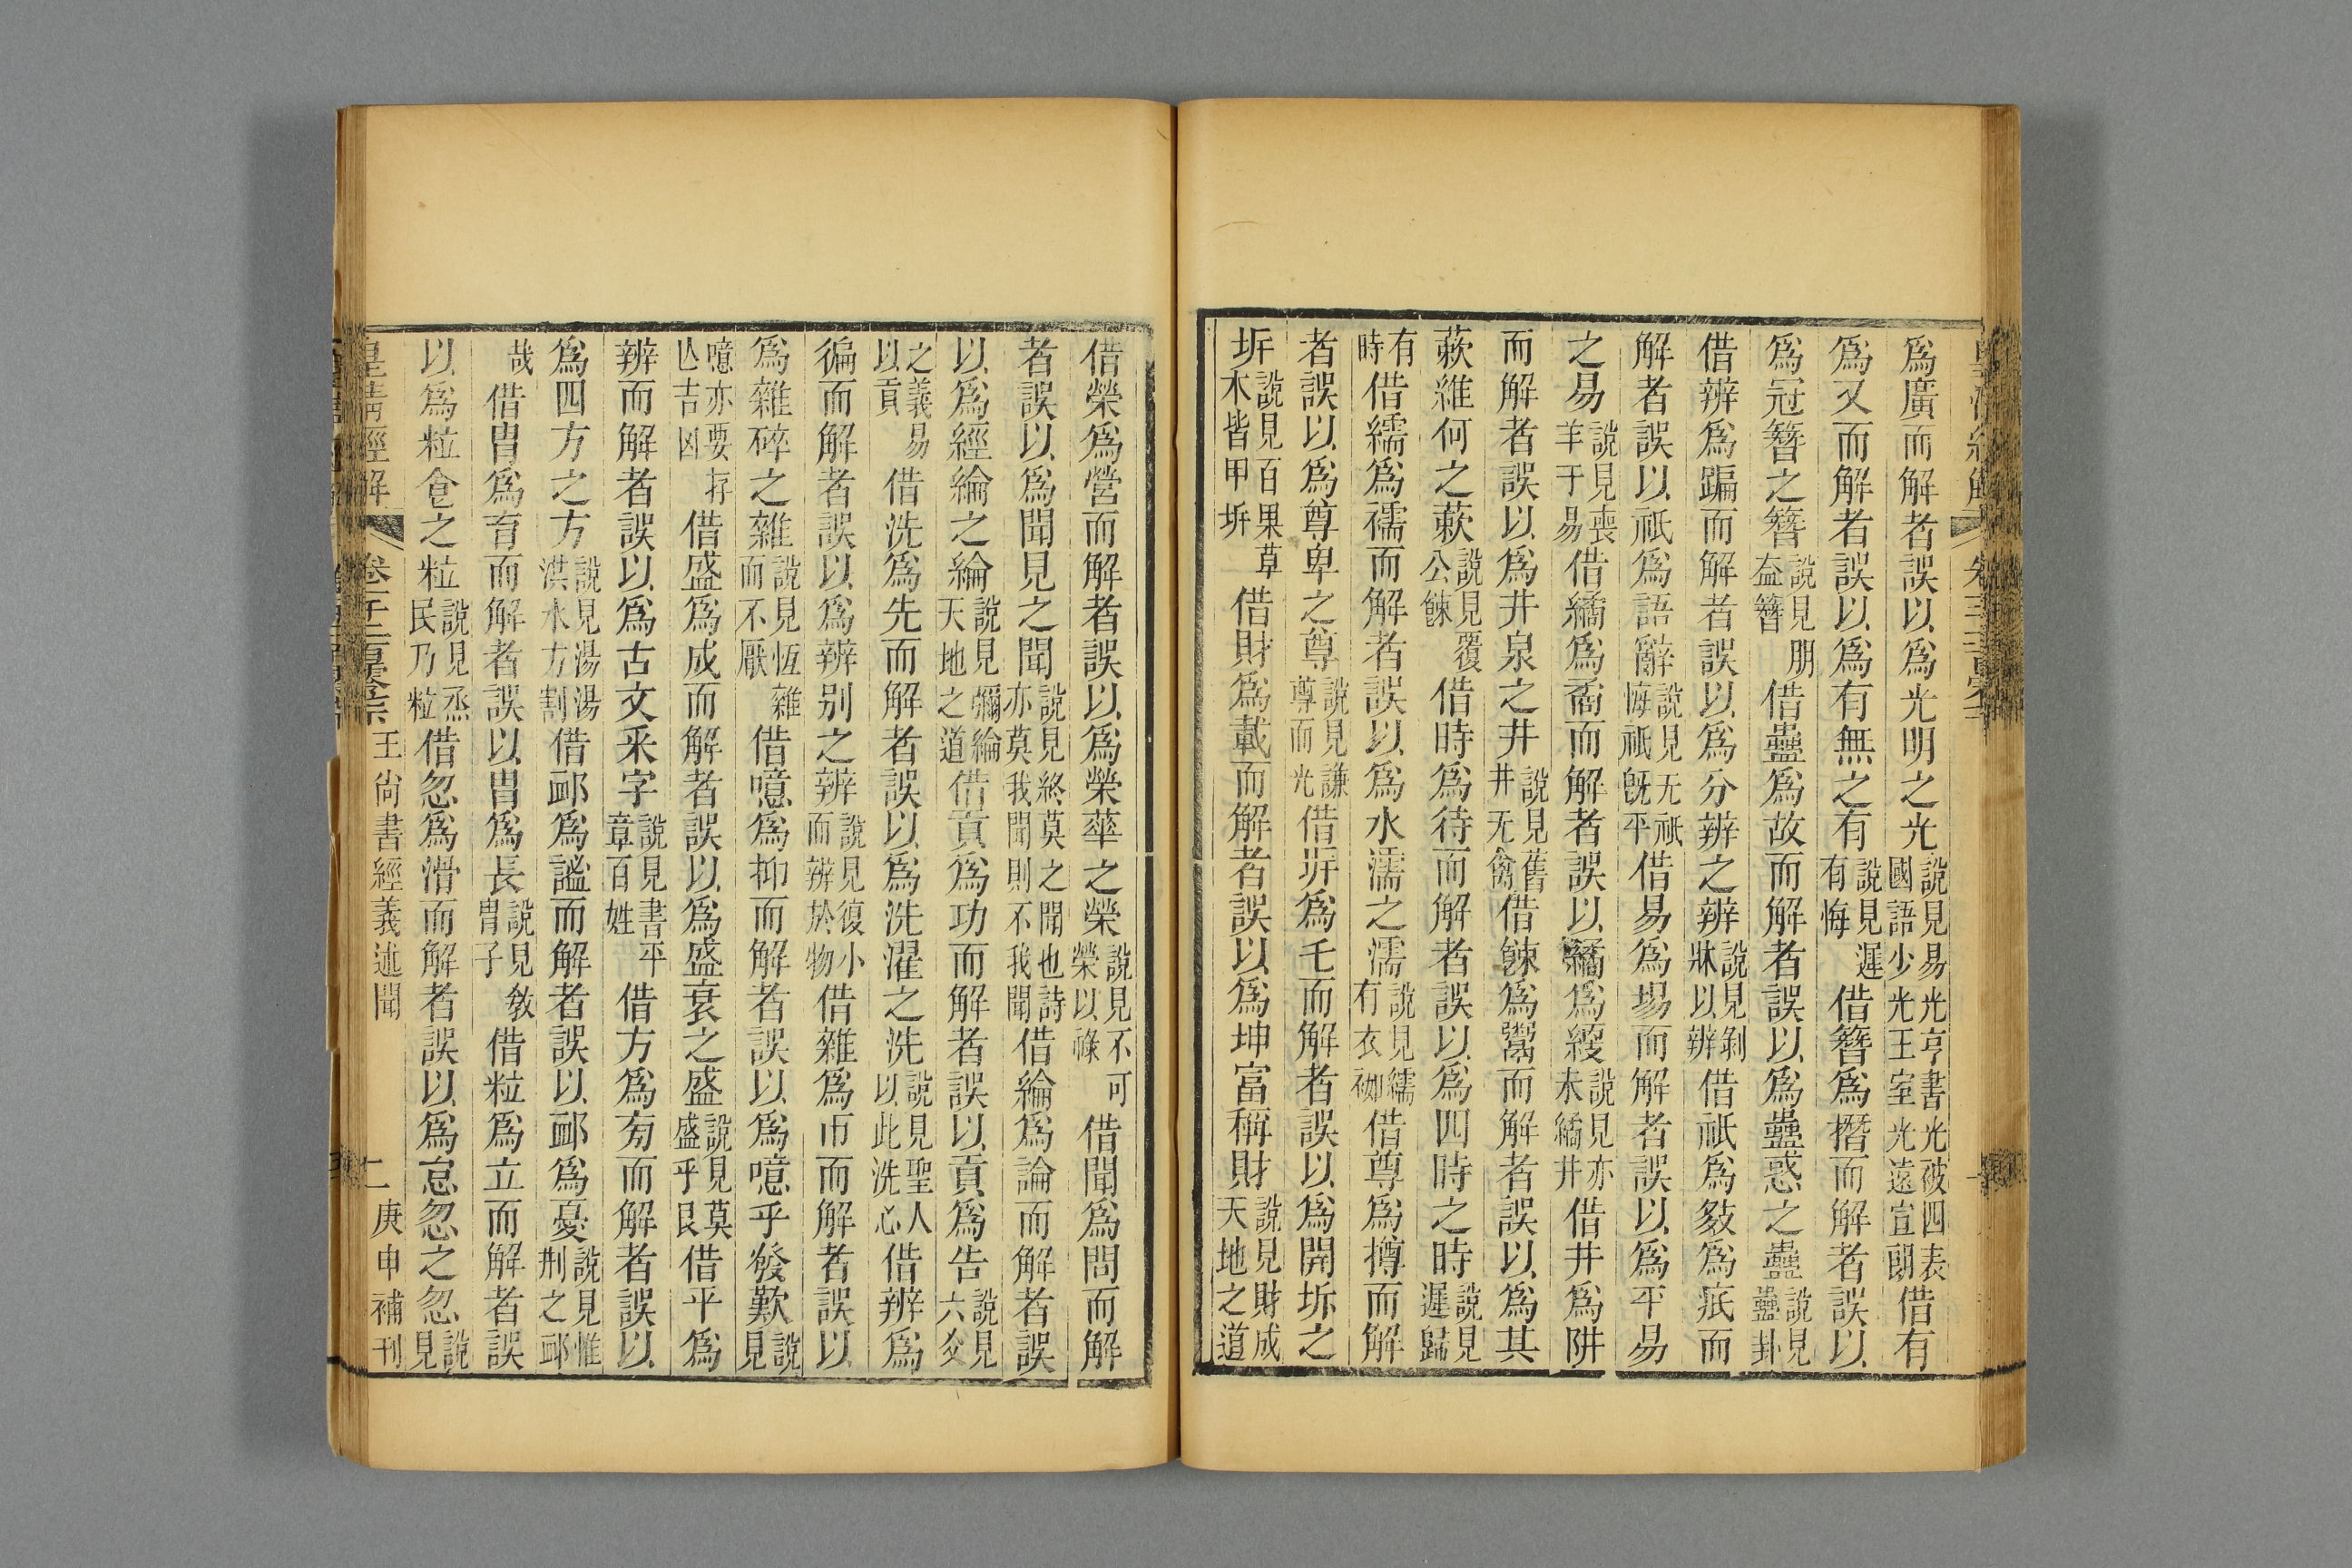 爲廣而解者誤以爲光明之光說見易光亨書光被四表國語少光王室光遠宣朗借有
爲又而解者誤以爲有無之有說見遲有悔借簪爲撍而解者誤以
爲冠簪之簪說見朋盍簪借蠱爲故而解者誤以爲蠱惑之蠱說見蠱卦
借辨爲蹁而解者誤以爲分辨之辨說見剝牀以辨借祇爲㩻爲疧而
解者誤以祇爲語辭說見无祇悔祇旣平借易爲埸而解者誤以爲平易
之易說見喪羊于易借繘爲矞而解者誤以繘爲綆說見亦未繘井借井爲阱
而解者誤以爲井泉之井說見舊井无禽借餗爲鬻而解者誤以爲其
蔌維何之蔌說見覆公餗借時爲待而解者誤以爲四時之時說見遲歸
有時借繻爲襦而解者誤以爲水濡之濡說見繻有衣袽借尊爲撙而解
者誤以爲尊卑之尊說見謙尊而光借坼爲乇而解者誤以爲開坼之
坼說見百果草木皆甲坼借財爲載而解者誤以爲坤富稱財說見財成天地之道
借榮爲營而解者誤以爲榮華之榮說見不可榮以祿借聞爲問而解
者誤以爲聞見之聞說見終莫之聞也詩亦莫我聞則不我聞借綸爲論而解者誤
以爲經綸之綸說見彌綸天地之道借貢爲功而解者誤以貢爲告說見六爻
之義易以貢借洗爲先而解者誤以爲洗濯之洗說見聖人以此洗心借辨爲
徧而解者誤以爲辨别之辨說見復小而辨於物借雜爲帀而解者誤以
爲雜碎之雜說見恆雜而不厭借噫爲抑而解者誤以爲噫乎發歎說見
噫亦要存亾吉凶借盛爲成而解者誤以爲盛衰之盛說見莫盛乎艮借平爲
辨而解者誤以爲古文釆字說見書平章百姓借方爲旁而解者誤以
爲四方之方說見湯湯洪水方割借卹爲謐而解者誤以卹爲憂說見惟荆之卹
哉借胄爲育而解者誤以胄爲長說見敎胄子借粒爲立而解者誤
以爲粒食之粒說見烝民乃粒借忽爲滑而解者誤以爲怠忽之忽說見
皇淸經解 卷千二百 王尙書經義述聞 二 庚申補刊